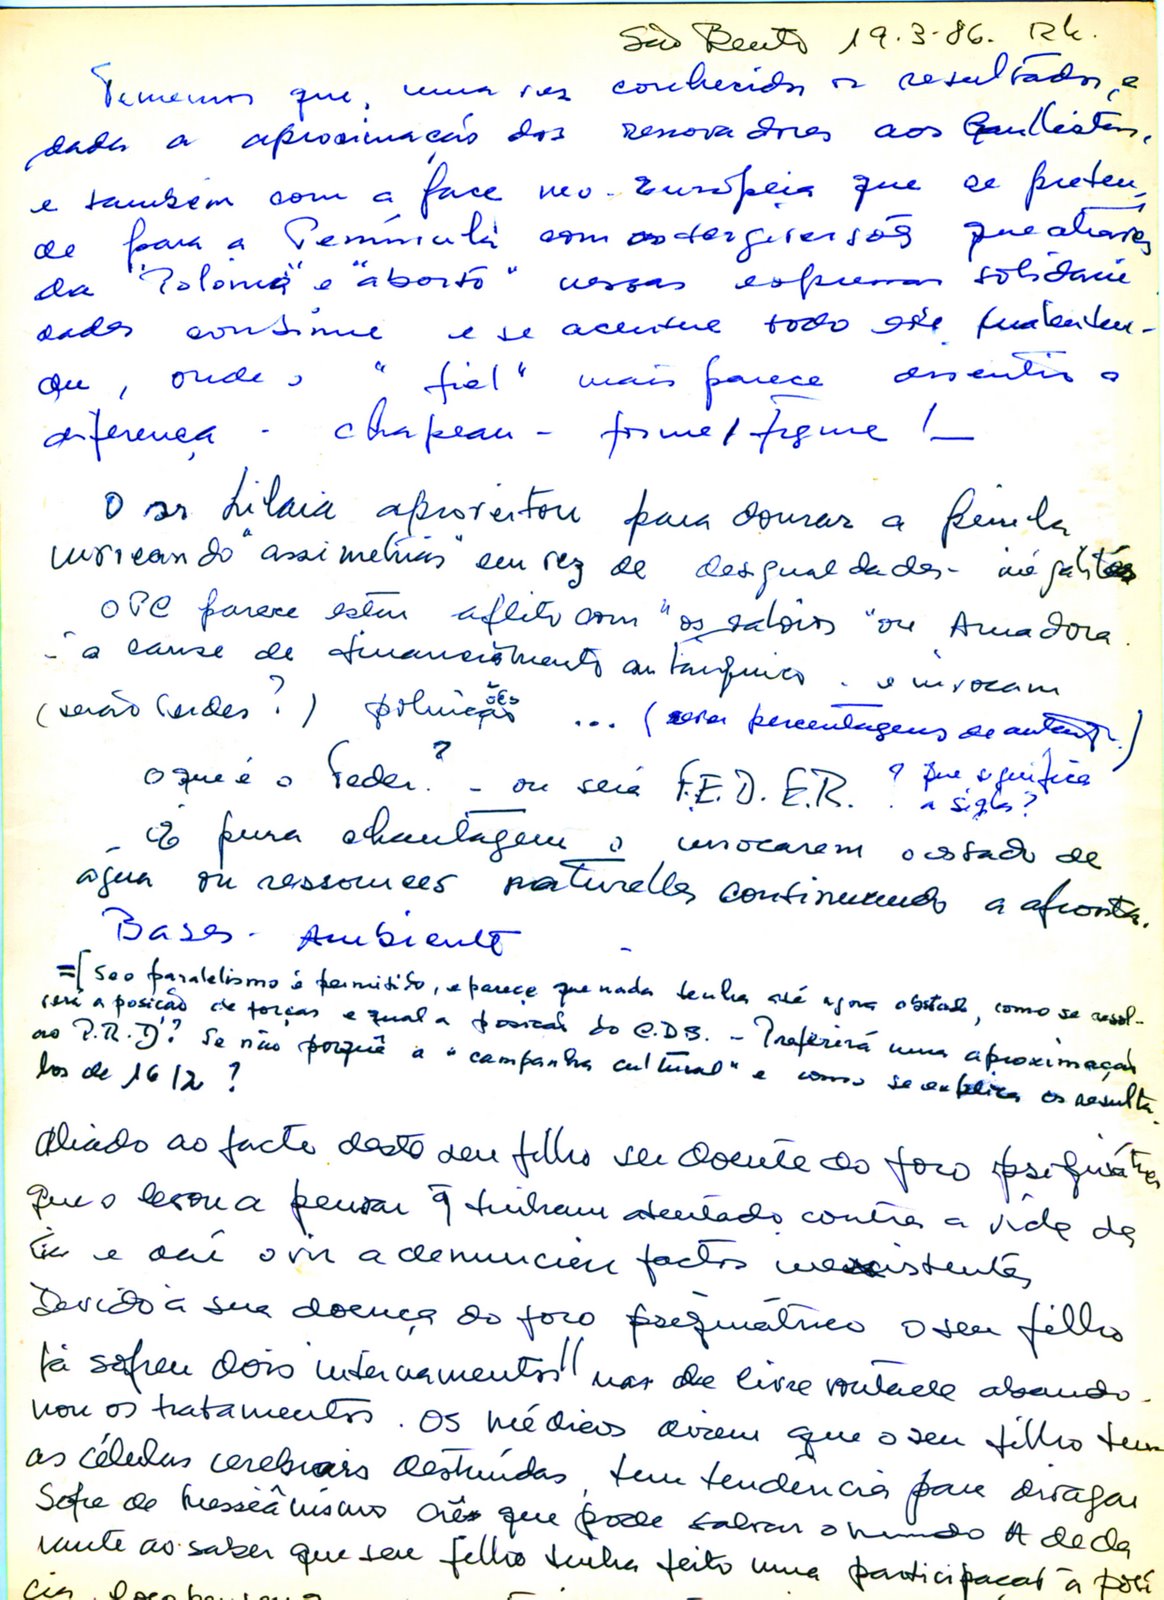 São Bento 19.3.86.
Tememos que, uma vez conhecidos os resultados, e
dada a aproximação dos renovadores aos Gaullistas,
e também com a face neo-Européia que se preten-
de para a Península com as tergiversões que através
da "Polónia" e "aborto" nessas expressas solidarie
dades continue e se acentue todo este malenten-
du, onde o "fiel" mais parece dissentir a
diferença - chapeau - forme/figure !_
O sr Lilaia aproveitou para dourar a pírula
invocando "assimetrias" em vez de desigualdades - inégalités
O PC parece estar aflito com "os sábios" ou Amadora.
- a cause de financiamento autárquico. e invocam
(serão Verdes?) poluições ... (seria percentagens de autarq.)
o que é o Feder? - ou será F.E.D.E.R. ? Que significa
a sigla?
É pura chantagem o invocarem o estado de
água ou ressources naturelles continuando a afronta.
Bases - Ambiente -
=[ se o paralelismo é permitido, e parece que nada tenha até agora obstado, como se resol-
verá a posição de forças e qual a posição do C.D.S. - Preferirá uma aproximação
ao P.R.D.? Se não porquê a "campanha cultural" e como se explica os resulta-
dos de 16/2 ?
Aliado ao facto deste seu filho ser doente do foro psiquiátrico
que o levou a pensar q tinham atentado contra a vida da
tia e daí o vir a denunciar factos inexistentes
Devido à sua doença do foro psiquiátrico o seu filho
já sofreu dois internamentos, mas de livre vontade abando-
nou os tratamentos. Os médicos dizem que o seu filho tem
as células cerebrais destruídas, tem tendencia para divagar
Sofre de messiânismo crê que pode salvar o mundo A decla
rante ao saber que seu filho tinha feito uma participação à polí
cia